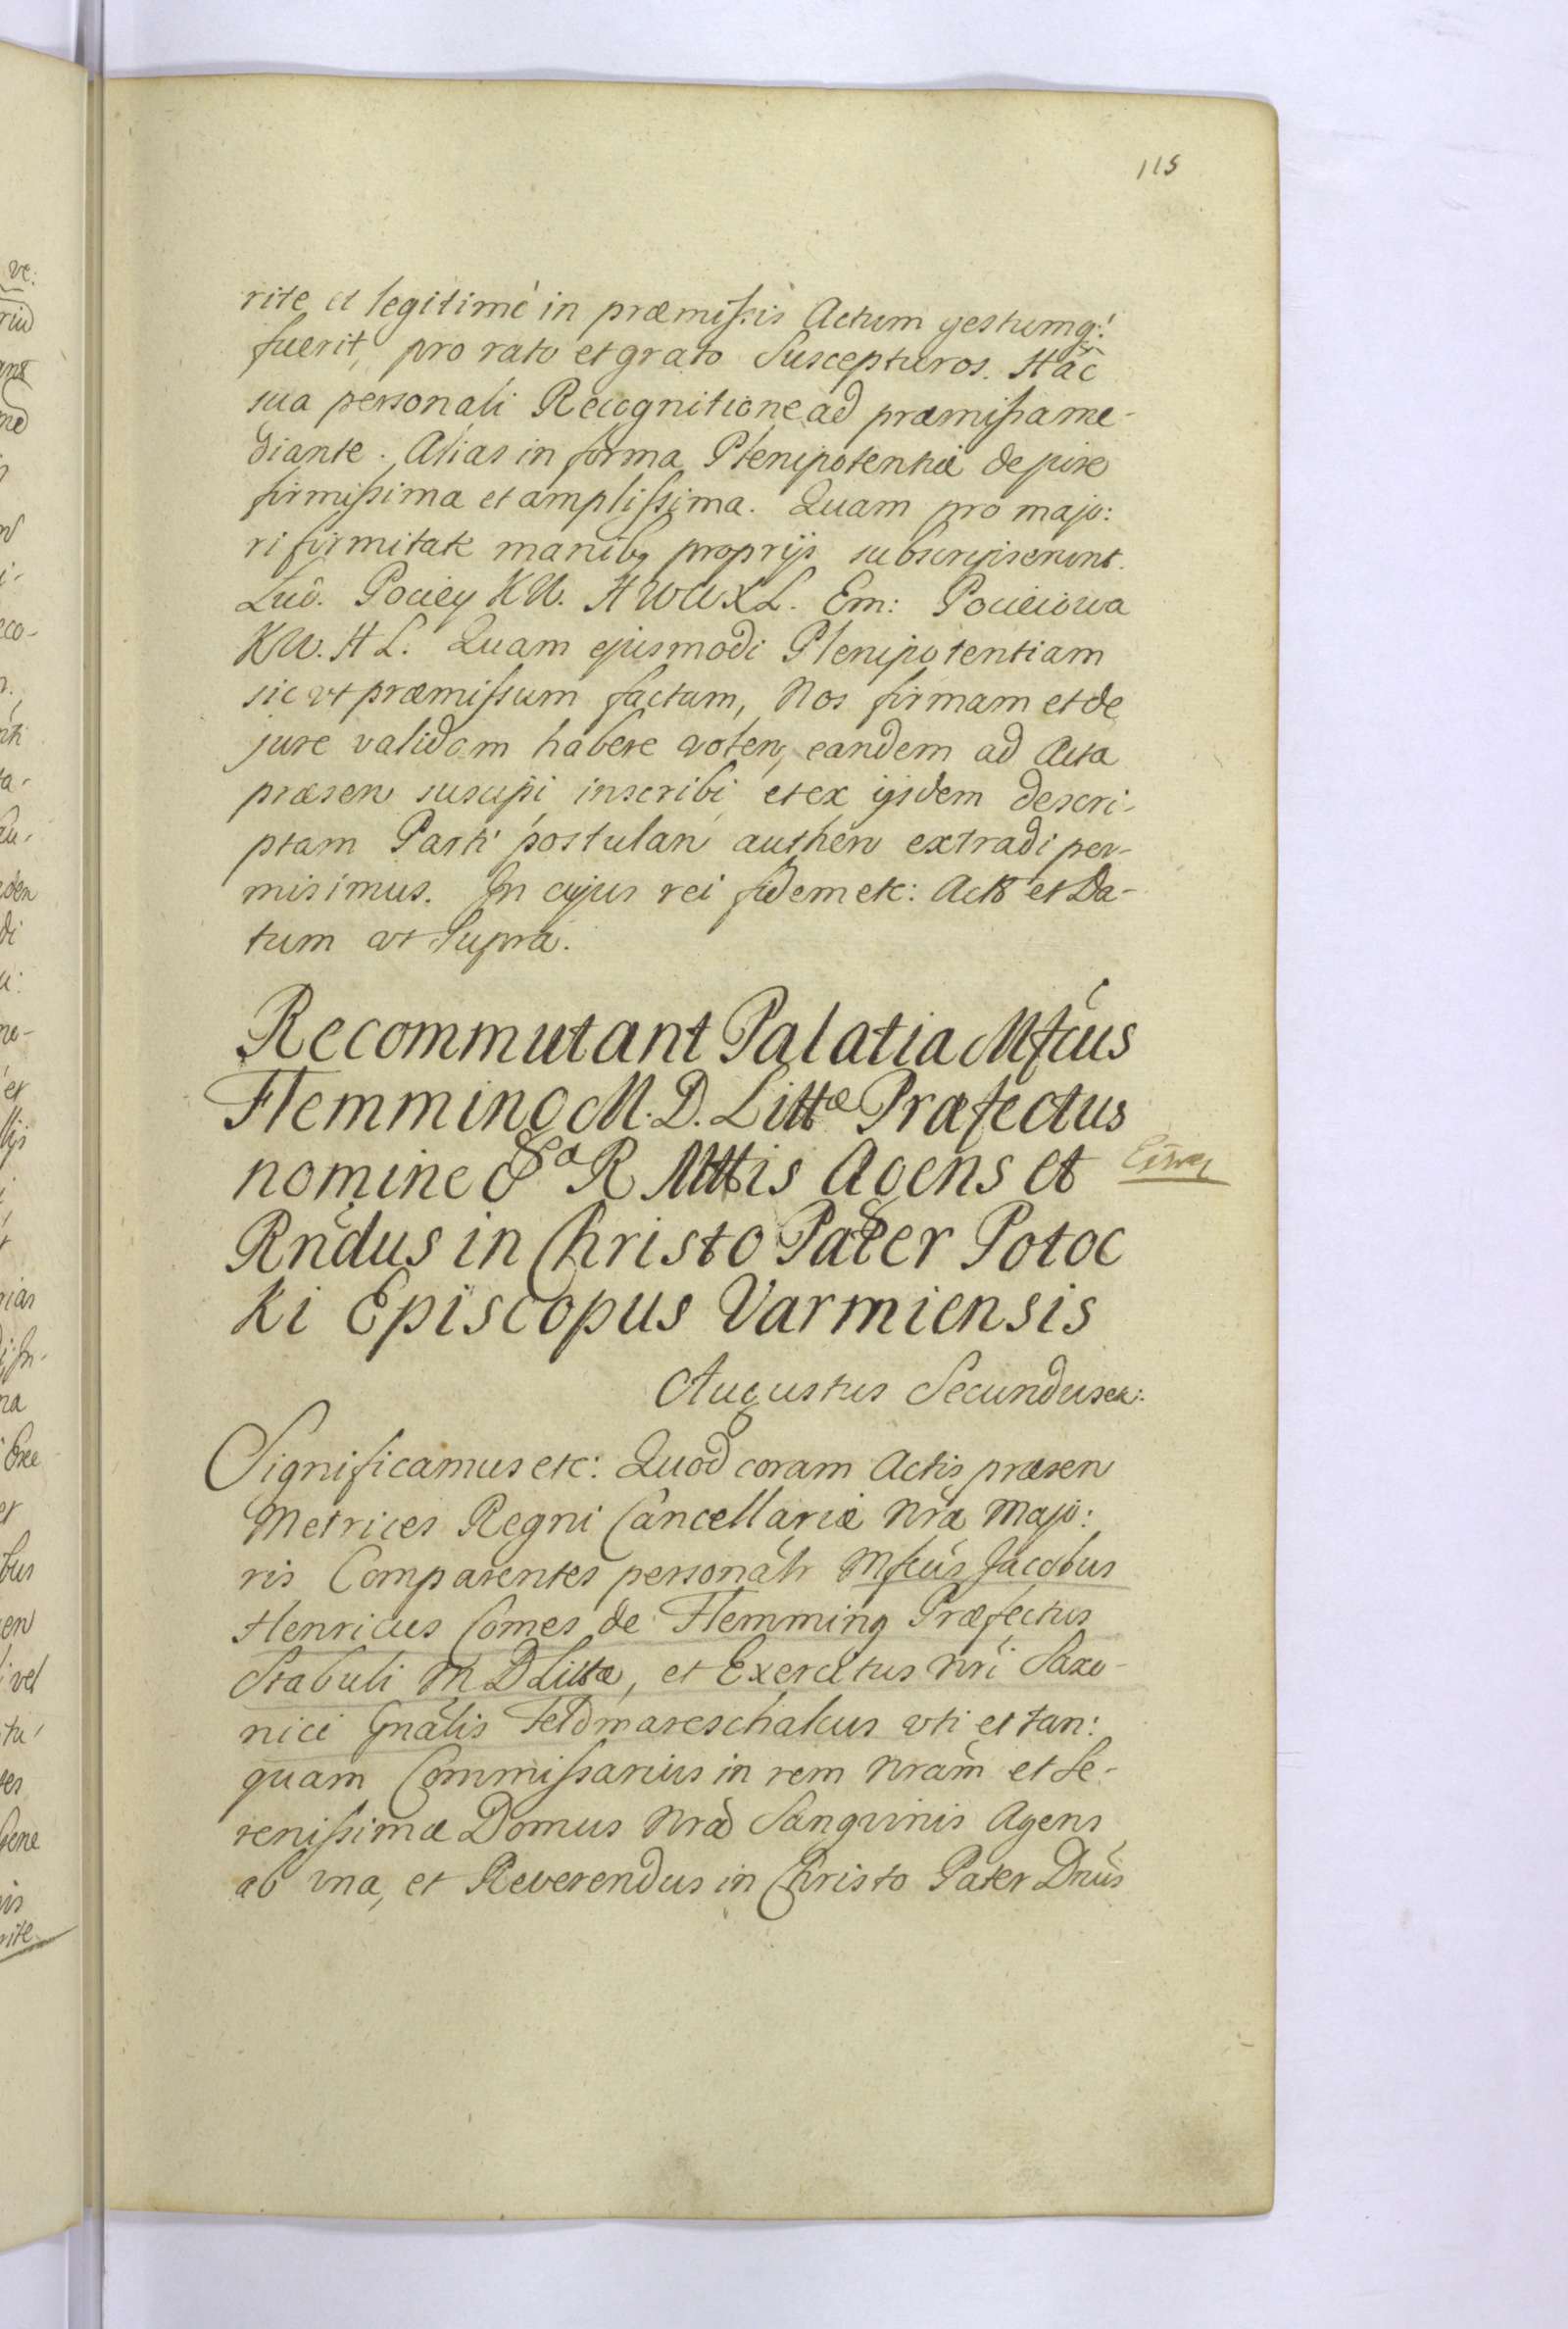 115
rite et legitimè in præmissis Actum gestumq́:
fuerit, pro rato et grato Suscepturos. Hac
sua personali Recognitione ad præmissa me-
diante. Alias in forma Plenipotentiæ de jure
firmissima et amplissima. Quam pro majo:
ri firmitate manibq proprijs subscripserunt.
Lud. Pociey KW. HWWXL. Em: Pocieiowa
KW. HL. Quam ejusmodi Plenipotentiam
sic vt præmissum factam, Nos firmam et de
jure validam habere volen, eandem ad Acta
præsen suscipi inscribi et ex ijsdem descri-
ptam Parti postulan authen extradi per-
misimus. In cujus rei fidem etc: Act et Da-
tum vt Supra.
Recommutant Palatia Mfcus
Flemming M. D. Littæ Præfectus
nomine Sa R Mttis Agens et
Rndus in Christo Pater Potoc
ki Episcopus Varmiensis
Augustus Secundus etc:
Significamus etc: Quod coram Actis præsen
Metrices Regni Cancellariæ Nræ Majo:
ris Comparentes personalr Mfcus Jacobus
Henricus Comes de Flemming Præfectus
Stabuli M D Littæ, et Exercitus Nri Saxo-
nici Gnalis Feldmareschalcus vti et tan:
quam Commissarius in rem Nram et Se-
renissimæ Domus Nræ Sanguinis Agens
ab vna, et Reverendus in Christo Pater Dnus